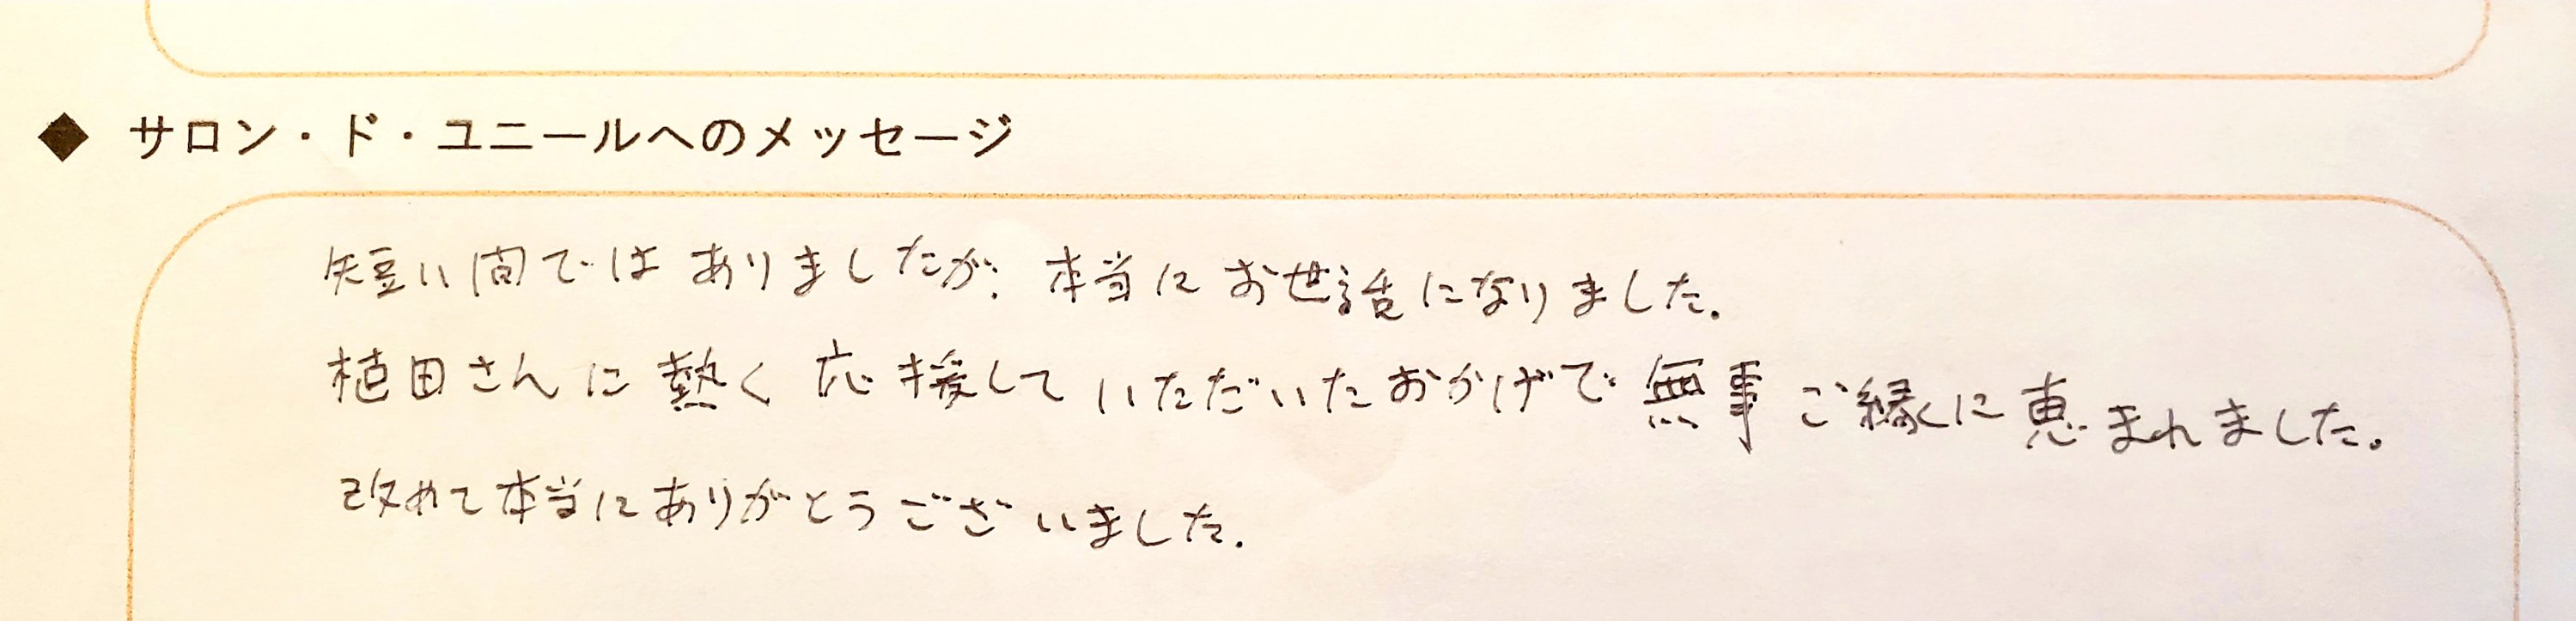 ◆ サロン・ド・ユニールへのメッセージ
短い間ではありましたが、本当にお世話になりました。
植田さんに熱く応援していただいたおかげで無事ご縁に恵まれました。
改めて本当にありがとうございました。